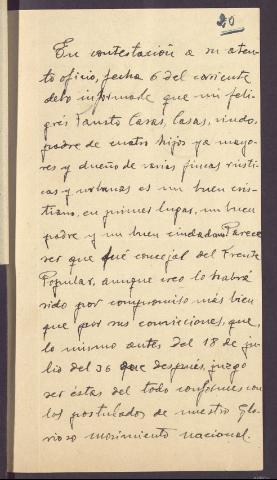 20
En contestación a su aten-
to oficio, fecha 6 del corriente
debo informarle que mi feli-
grés Fausto Casas, Casas, viudo,
padre de cuatro hijos ya mayo-
res y dueño de varias fincas rústi-
cas y urbanas es un buen cris-
tiano, en primer lugar, un buen
padre y un buen ciudadano. Parece
ser que fué concejal del Frente
Popular, aunque creo lo habrá
sido por compromiso más bien
que por sus convicciones, que,
lo mismo antes del 18 de ju-
lio del 36 que después, juzgo
ser éstas del todo conformes con
los postulados de nuestro Glo-
rioso movimiento nacional.